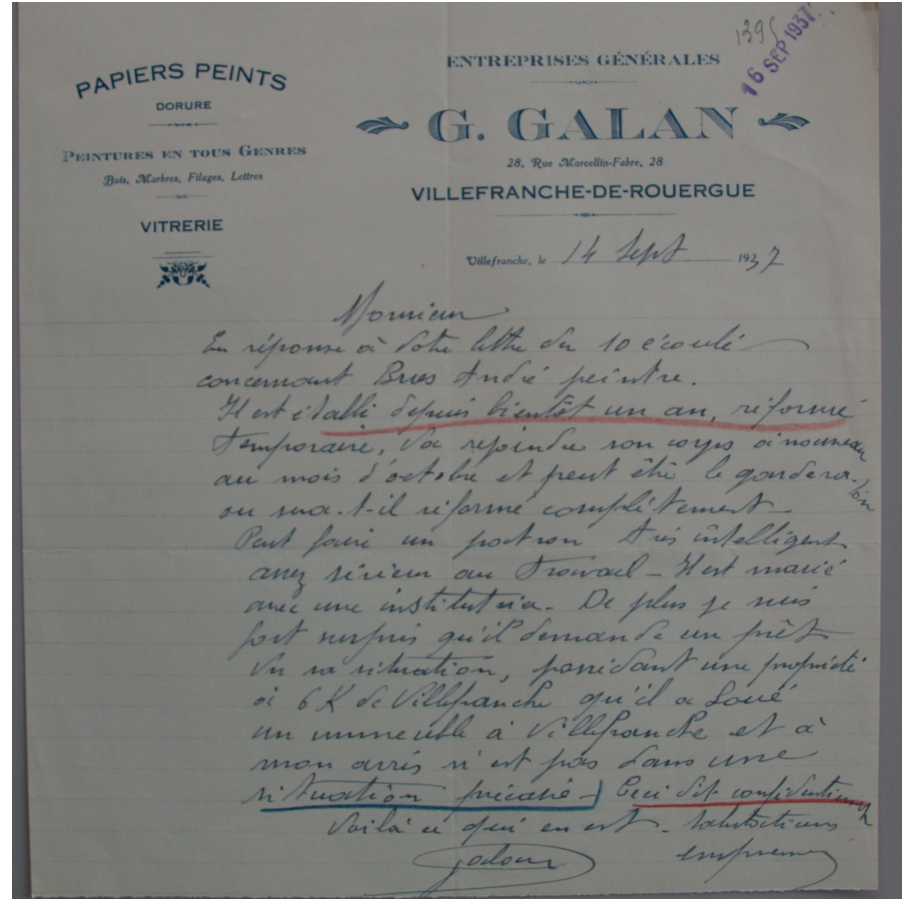 1395
16 SEP 1937
PAPIERS PEINTS
DORURE
PEINTURES EN TOUS GENRES
Bois, Marbres, Filages, Lettres
VITRERIE
ENTREPRISES GÉNÉRALES
G. GALAN
28, Rue Marcellin-Fabre, 28
VILLEFRANCHE-DE-ROUERGUE
Villefranche, le 14 Sept 1937
Monsieur
En réponse à votre lettre du 10 écoulé
concernant Bros André peintre.
Il est établi depuis bientôt un an, réformé
temporaire, va rejoindre son corps à nouveau
au mois d'octobre et peut être le gardera-t-on
ou sera-t-il réformé complètement -
Peut faire un patron très intelligent
assez sérieux au travail - Il est marié
avec une institutrice. De plus je suis
fort surpris qu'il demande un prêt
vu sa situation, possédant une propriété
à 6 K de Villefranche qu'il a loué
un immeuble à Villefranche et à
mon avis n'est pas dans une
situation précaire - Ceci dit confidentiel
Voilà ce qui en est. Salutations
empressées
Galan